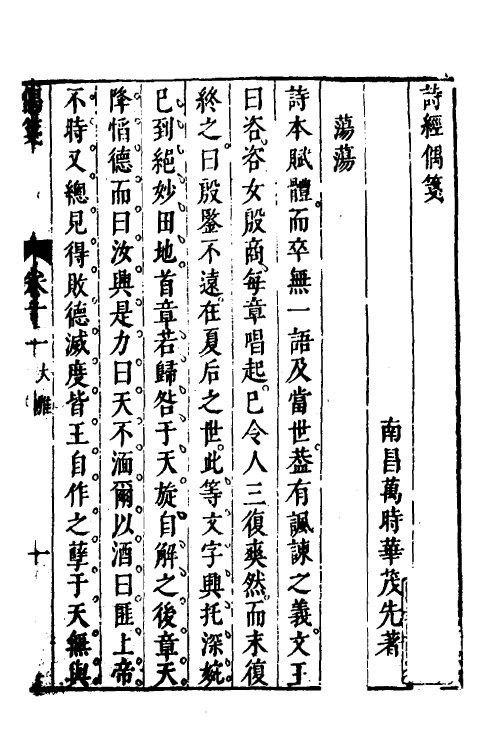 詩經偶箋
南昌萬時華茂先著
蕩蕩
詩本賦體而卒無一語及當世葢有諷諫之義文王
曰咨咨女殷商每章唱起已令人三復爽然而末復
終之曰殷鑒不遠在夏后之世此等文字興托深婉
已到絕妙田地首章若歸咎于天旋自解之後章天
降慆德而曰汝興是力曰天不湎爾以酒曰匪上帝
不時又總見得敗德滅度皆王自作之孽于天無與
偶箋
卷十一
大雅
十